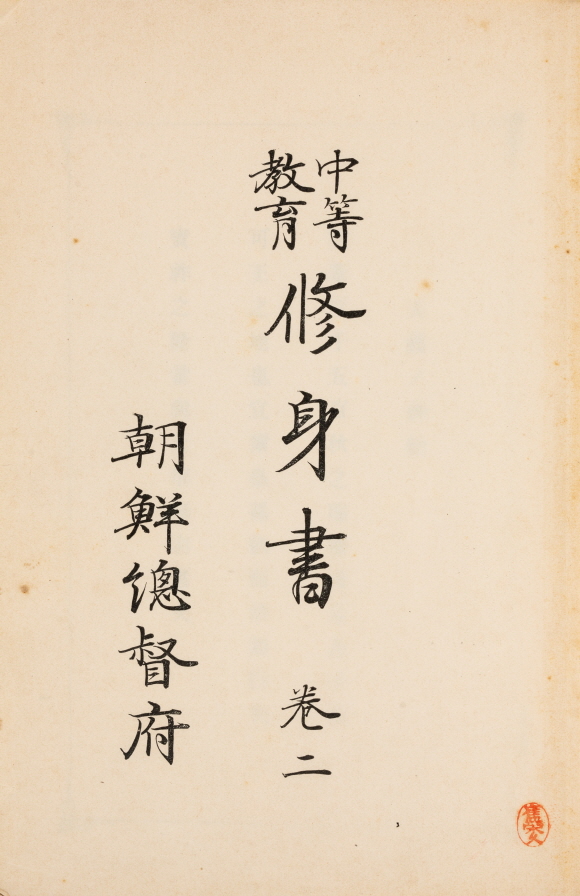 中等
教育
修身書 卷二
朝鮮總督府